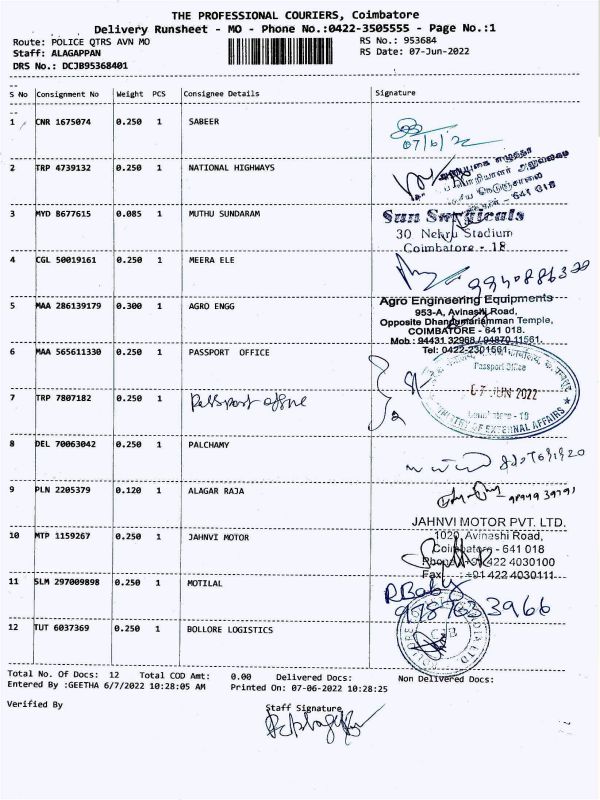 THE PROFESSIONAL COURIERS, Coimbatore
Delivery Runsheet - MO - Phone No.:0422-3505555 - Page No.:1
Route: POLICE QTRS AVN MO RS No.: 953684
Staff: ALAGAPPAN RS Date: 07-Jun-2022
DRS No.: DCJB95368401
S No Consignment No Weight PCS Consignee Details Signature
1 CNR 1675074 0.250 1 SABEER
07/6/22
2 TRP 4739132 0.250 1 NATIONAL HIGHWAYS
641 018
3 MYD 8677615 0.085 1 MUTHU SUNDARAM
Sun Surgicals
30 Nehru Stadium
Coimbatore - 18
4 CGL 50019161 0.250 1 MEERA ELE
5 MAA 286139179 0.300 1 AGRO ENGG
Agro Engineering Equipments
953-A, Avinashi Road,
Opposite Dhandumariamman Temple,
COIMBATORE - 641 018.
Mob : 94431 32968 / 94870 11561.
Tel: 0422-2301561.
6 MAA 565611330 0.250 1 PASSPORT OFFICE
Passport Office
07 JUN 2022
Coimbatore - 18
MINISTRY OF EXTERNAL AFFAIRS
7 TRP 7807182 0.250 1 Passport office
2
8 DEL 70063042 0.250 1 PALCHAMY
9 PLN 2205379 0.120 1 ALAGAR RAJA
10 MTP 1159267 0.250 1 JAHNVI MOTOR
JAHNVI MOTOR PVT. LTD.
1020, Avinashi Road,
Coimbatore - 641 018
Phone : +91 422 4030100
Fax : +91 422 4030111
11 SLM 297009898 0.250 1 MOTILAL
R Baby
12 TUT 6037369 0.250 1 BOLLORE LOGISTICS
CJB
Total No. Of Docs: 12 Total COD Amt: 0.00 Delivered Docs: Non Delivered Docs:
Entered By :GEETHA 6/7/2022 10:28:05 AM Printed On: 07-06-2022 10:28:25
Verified By Staff Signature